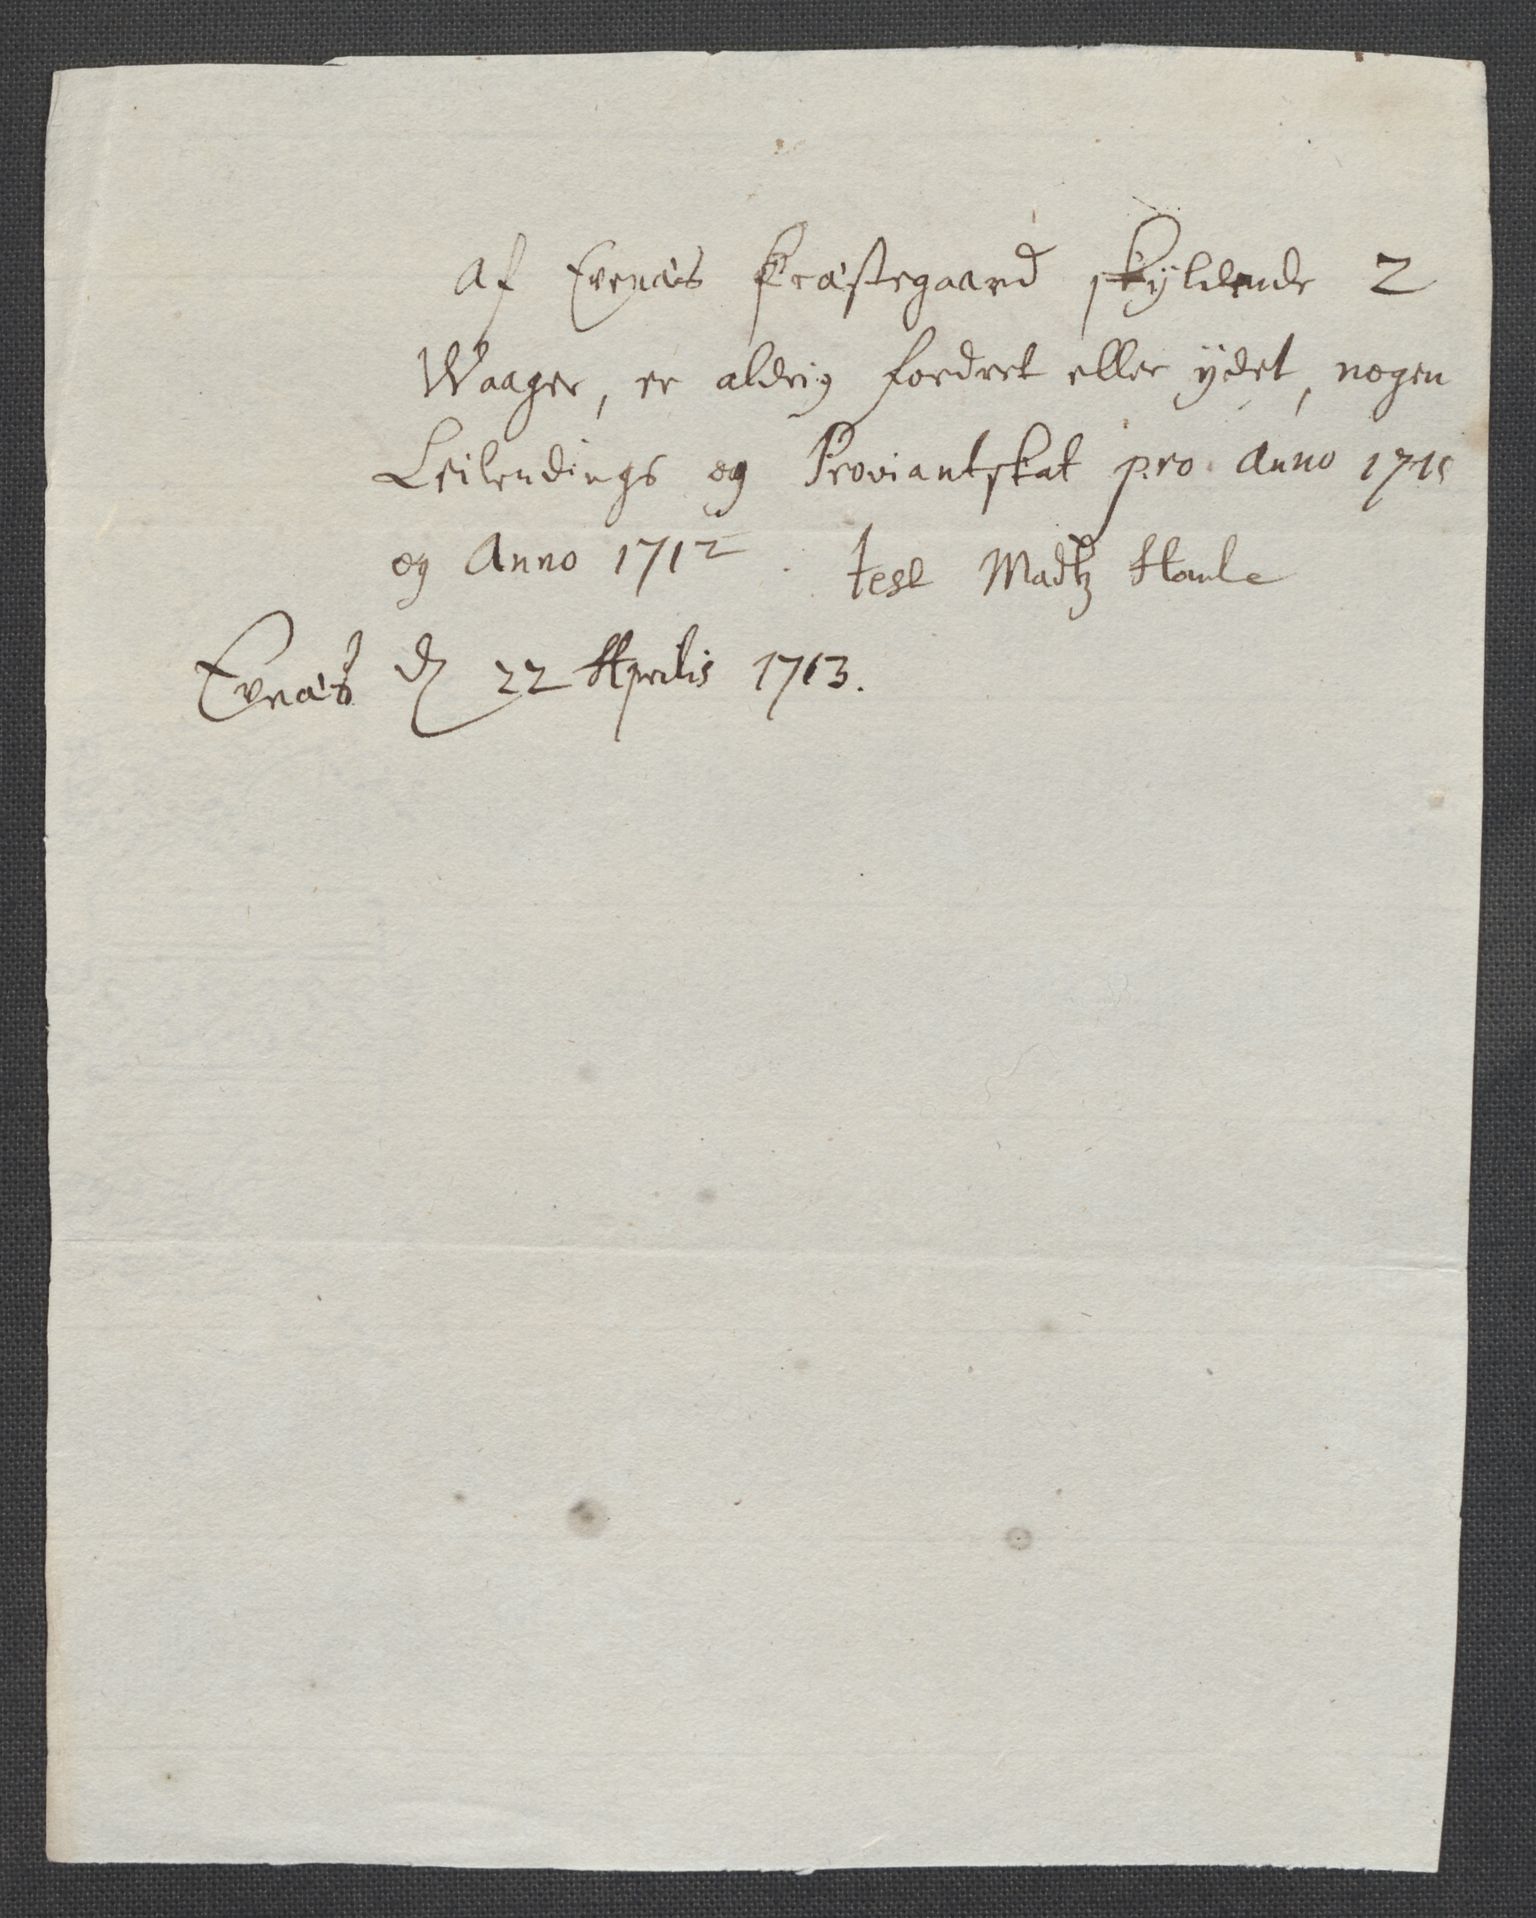 Af Evenæs Præstegaard skyldende 2
Waager, er aldrig fordret eller ydet, nogen
Leilendings og Proviantskat pro Anno 1711
og Anno 1712. test Madtz
Evenæs d 22 Aprilis 1713.